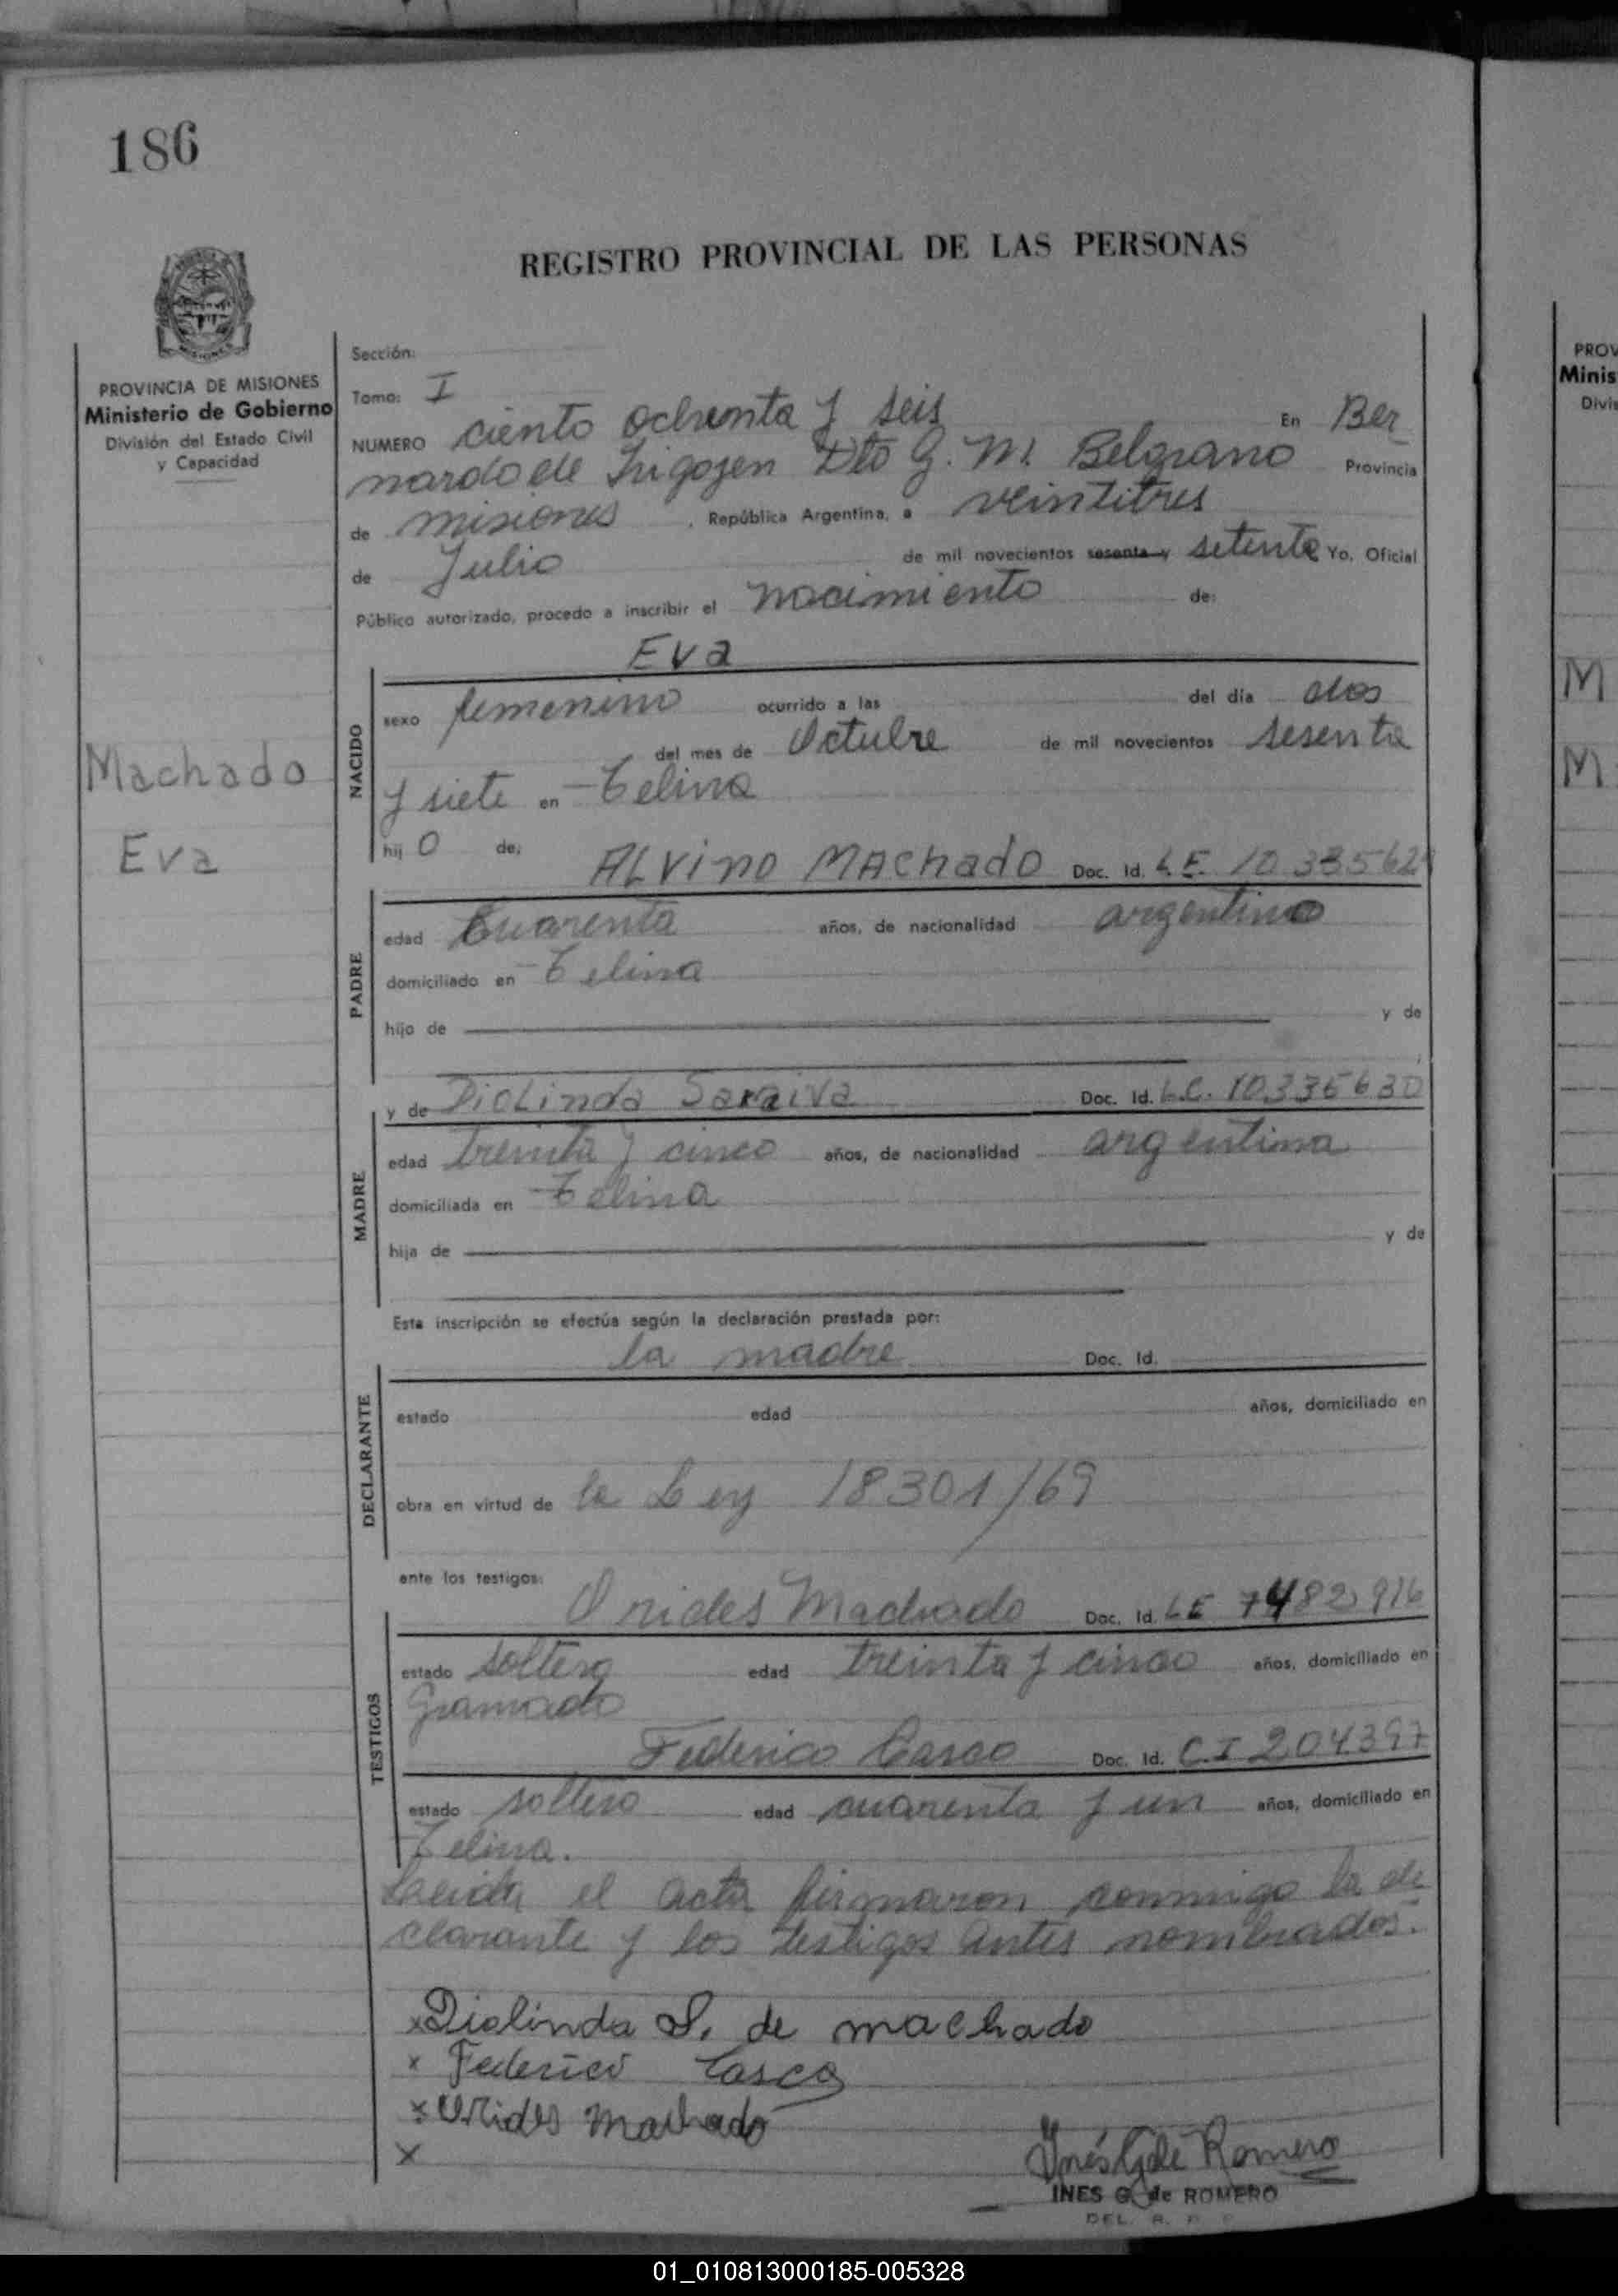 186
REGISTRO PROVINCIAL DE LAS PERSONAS
PROVINCIA DE MISIONES
Ministerio de Gobierno
División del Estado Civil
y Capacidad
Machado
Eva
Sección:
Tomo: I
NUMERO ciento ochenta y seis En Ber
nardo de Irigoyen Dto G. M. Belgrano Provincia
de misiones, República Argentina, a veintitres
de Julio de mil novecientos sesenta y setenta Yo, Oficial
Público autorizado, procedo a inscribir el nacimiento de:
Eva
NACIDO
sexo femenino ocurrido a las del día dos
del mes de Octubre de mil novecientos sesenta
y siete en Celina
hij o de: ALvino MAchado Doc. Id. L.E. 10.335.62
PADRE
edad Cuarenta años, de nacionalidad argentino
domiciliado en Celina
hijo de y de
y de DioLinda Saraiva Doc. Id. L.C. 10.335630
MADRE
edad treinta y cinco años, de nacionalidad argentina
domiciliada en Celina
hija de y de
Esta inscripción se efectúa según la declaración prestada por:
la madre Doc. Id.
DECLARANTE
estado edad años, domiciliado en
obra en virtud de la Ley 18301/69
ante los testigos:
Orides Machado Doc. Id. LE 7482916
TESTIGOS
estado soltero edad treinta y cinco años, domiciliado en
Gramado
Federico Casco Doc. Id. C.I 204.397
estado soltero edad cuarenta y un años, domiciliado en
Celina.
Leida el acta firmaron conmigo la de
clarante y los testigos antes nombrados.
x Diolinda S. de machado
x Federico Casco
x Orides Machado
x
Inés G de Romero
INES G. de ROMERO
DEL. R. P.
PROV
Minis
Divis
M
M
01_010813000185-005328